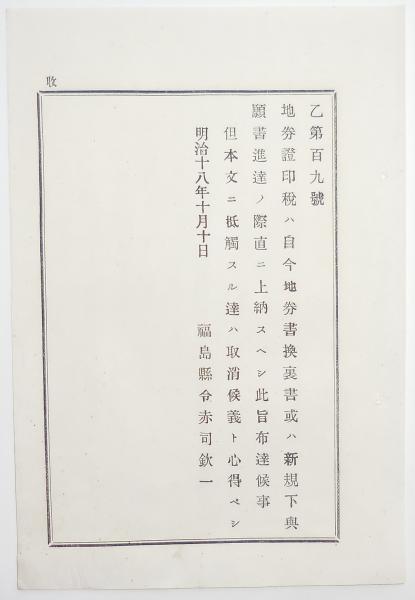 收
乙第百九號
地券證印稅ハ自今地券書換裏書或ハ新規下與
願書進達ノ際直ニ上納スヘシ此旨布達候事
但本文ニ抵觸スル達ハ取消候義ト心得ベシ
明治十八年十月十日
福島縣令赤司欽一